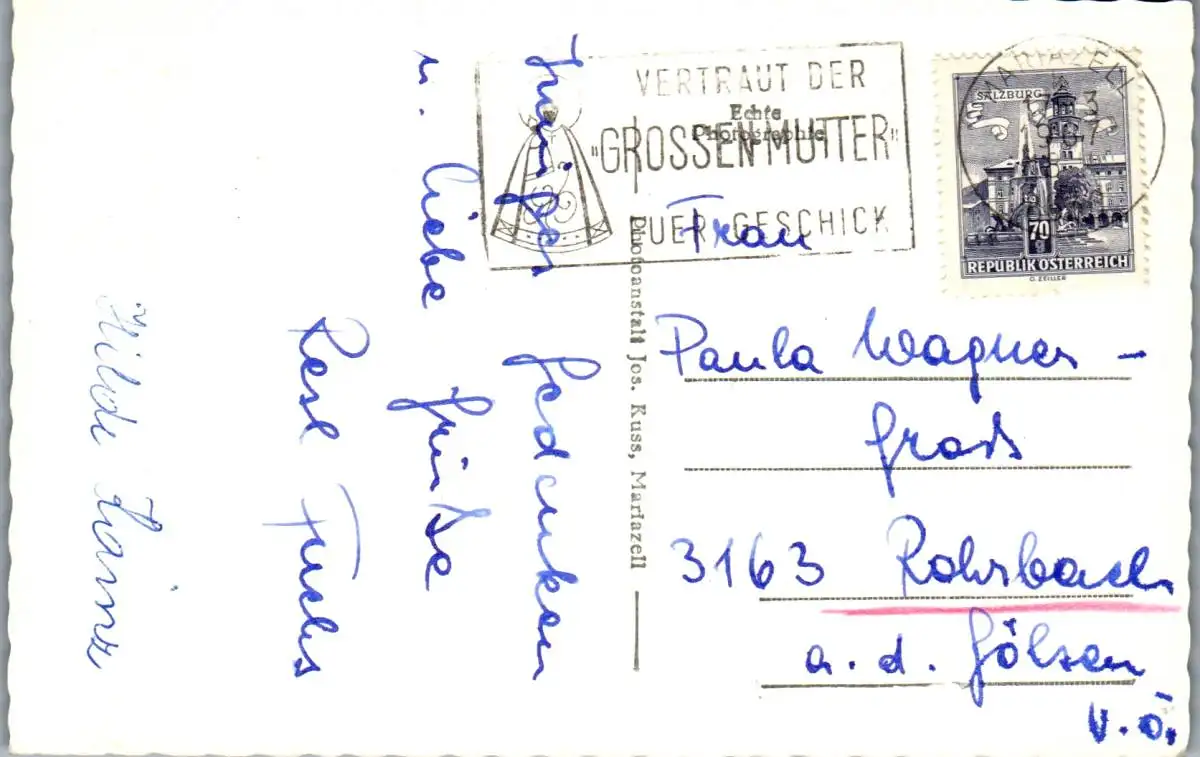 Inniges Gedenken
u. liebe Grüße
Resl Fuchs
Hilde Lainz
VERTRAUT DER
"GROSSEN MUTTER"
EUER GESCHICK
Echte
Photographie
Photoanstalt Jos. Kuss, Mariazell
MARIAZELL
SALZBURG
70
g
REPUBLIK ÖSTERREICH
O. ZEILLER
Frau
Paula Wagner -
Groß
3163 Rohrbach
a. d. Gölsen
N.Ö.